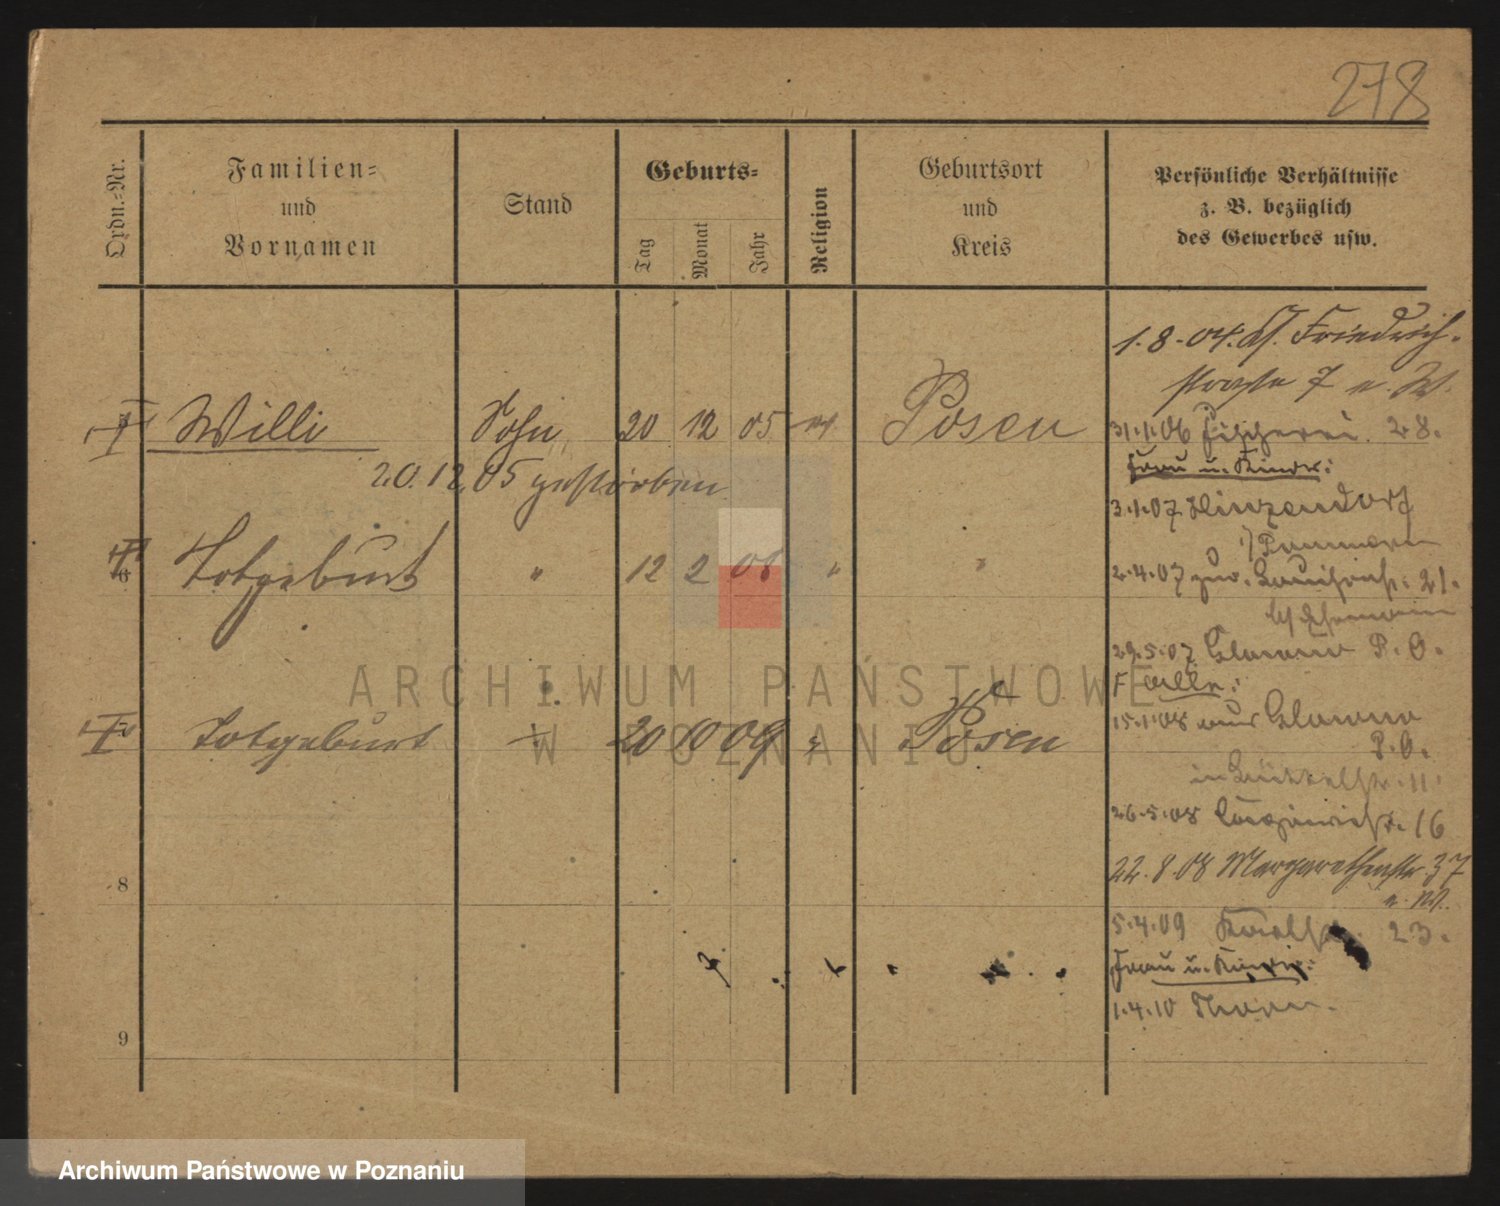 278
Ordn.-Nr.
Familien-
und
Vornamen
Stand
Geburts-
Tag
Monat
Jahr
Religion
Geburtsort
und
Kreis
Persönliche Verhältnisse
z. B. bezüglich
des Gewerbes usw.
1.8.04. Friedrich-
straße 7 u. W.
Willi Sohn 20 12 05 Posen
31.1.06 Fischerei 28.
20.12.05 gestorben
Frau u. Kinder:
3.1.07 Hinzendorf
i/ Pommern
Totgeburt " 12 2 08 " "
2.4.07 21.
29.5.07 Glowno P. O.
F alle:
15.1.08 aus Glowno
P. O.
Totgeburt 20 10 09 Posen
in 11.
26.5.08 16
8
22.8.08 Margarethenstr 37
u. W.
5.4.09 23.
Frau u. Kinder:
1.4.10 Thorn.
9
ARCHIWUM PAŃSTWOWE
W POZNANIU
Archiwum Państwowe w Poznaniu